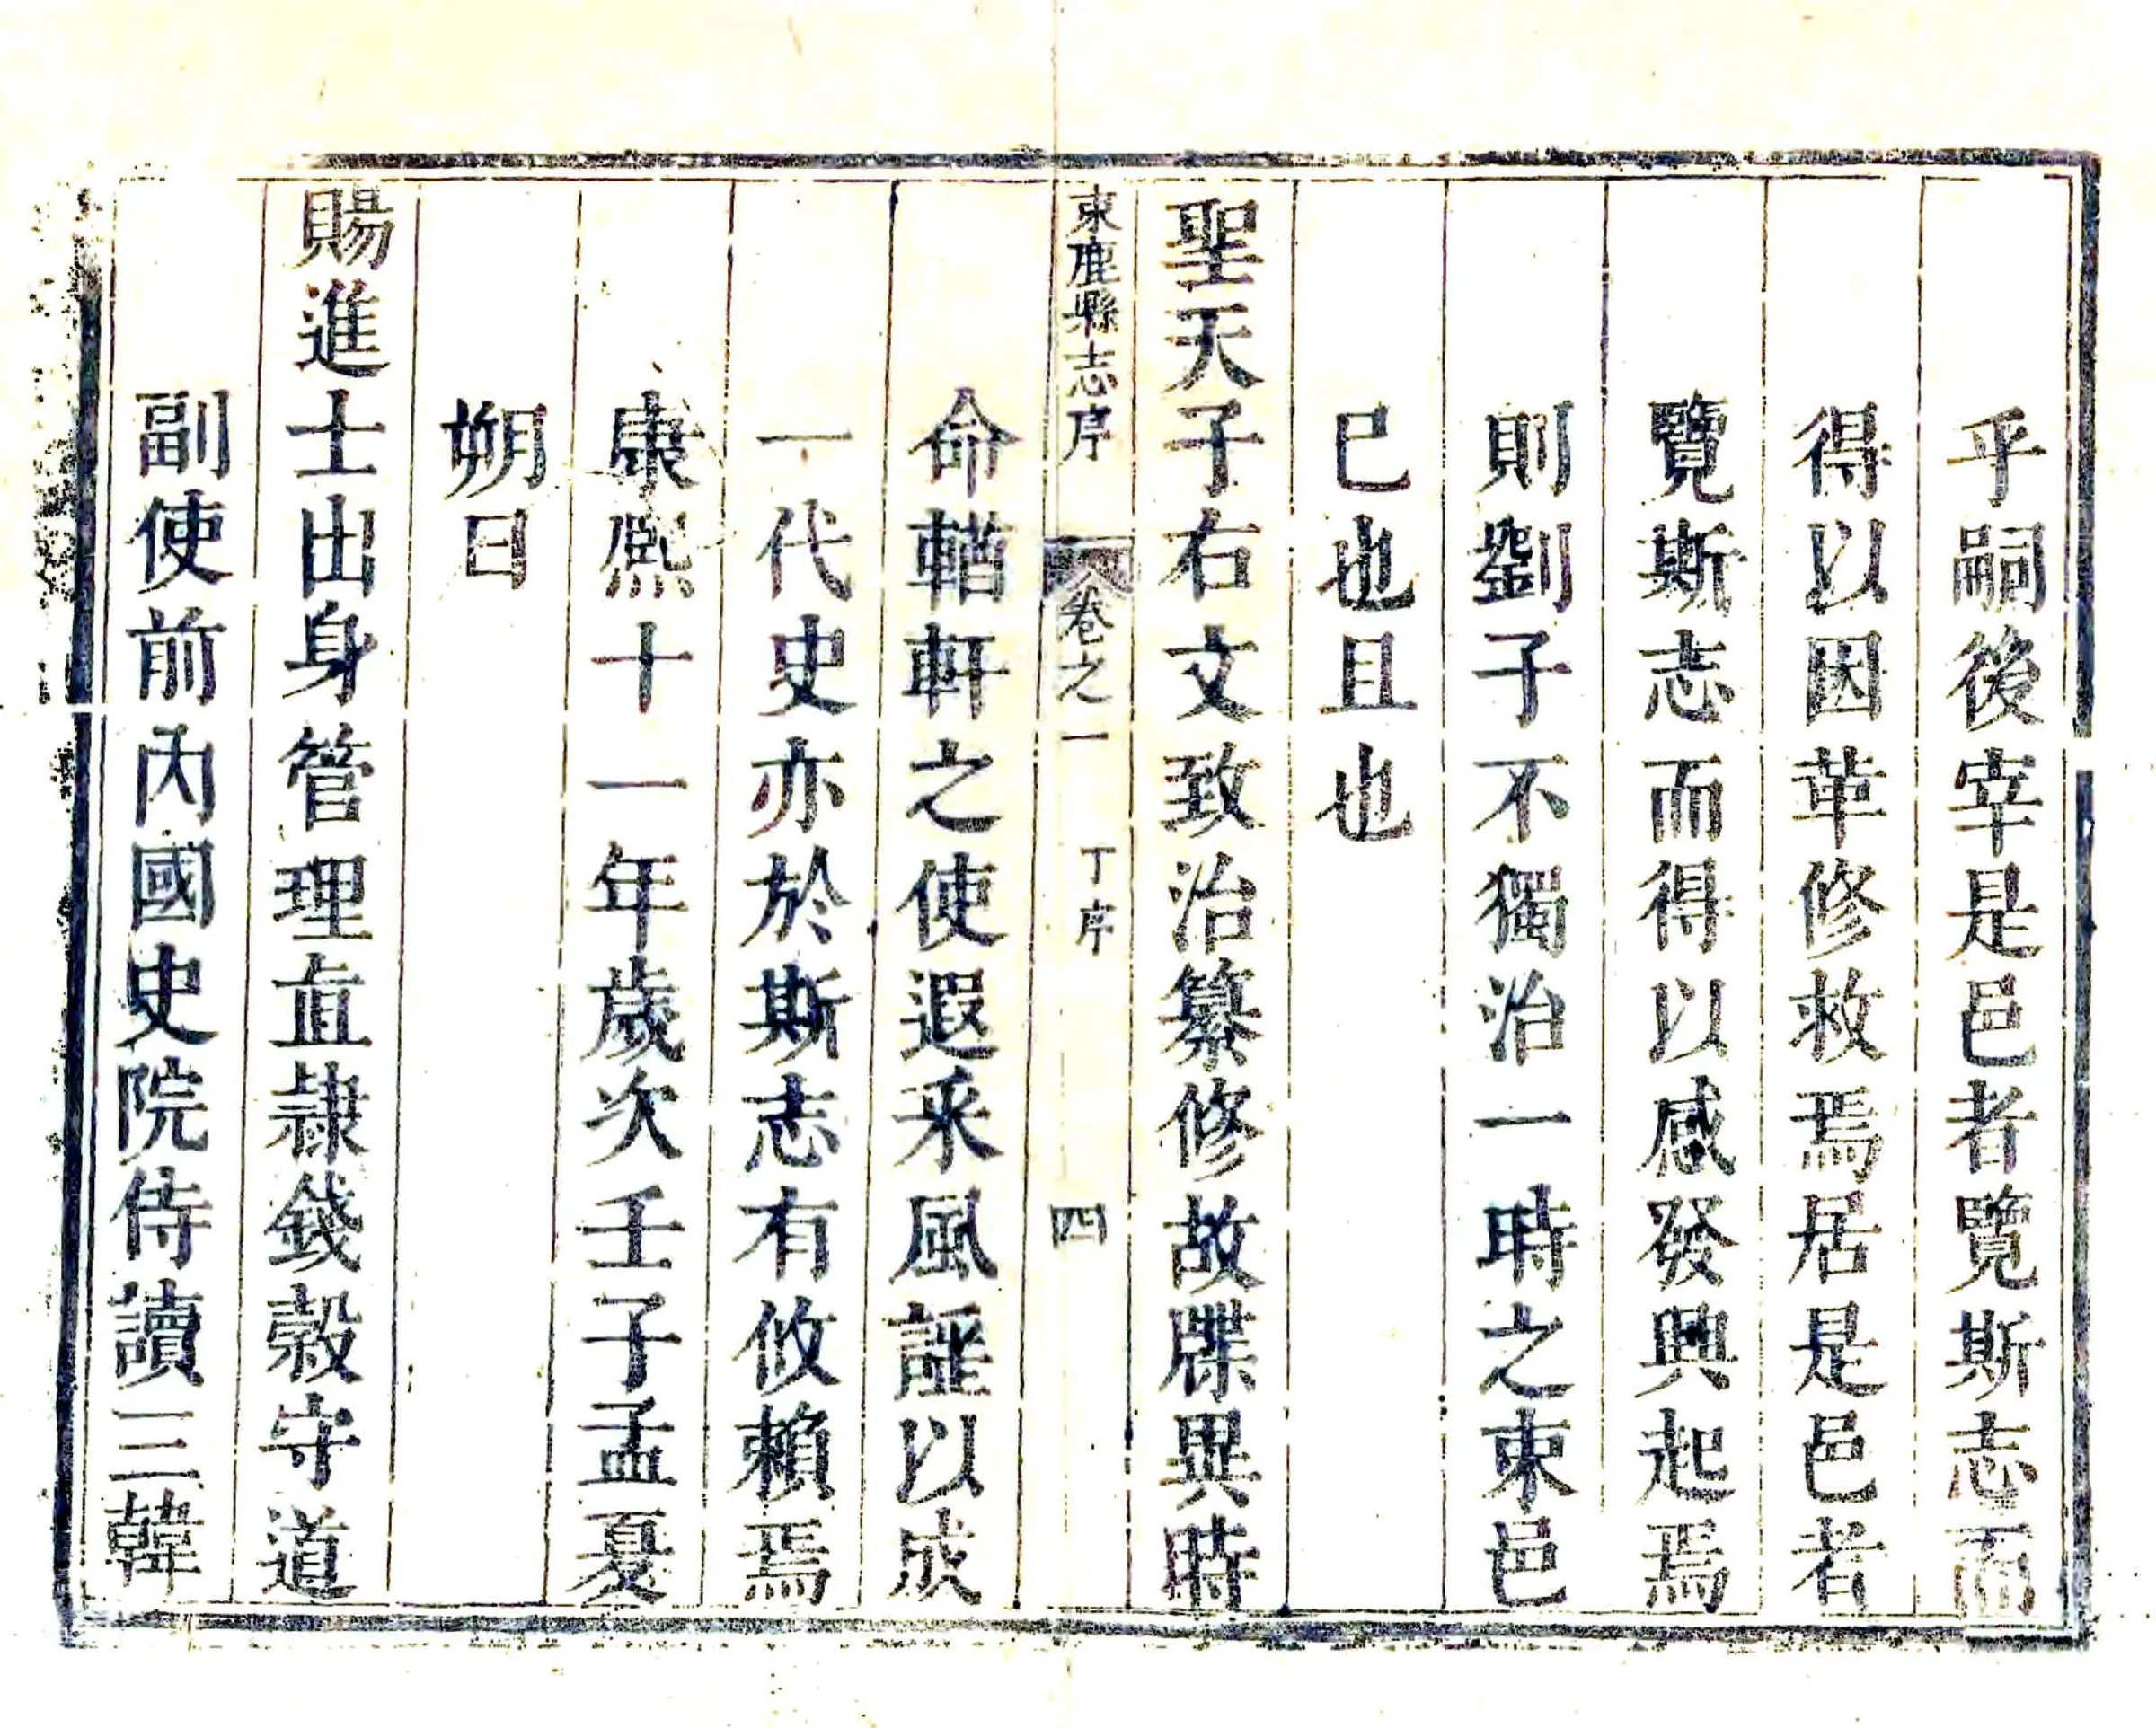 乎嗣後宰是邑者覽斯志而
得以因革修救焉居是邑者
覽斯志而得以感發興起焉
則劉子不獨治一時之束邑
已也且也
聖天子右文致治纂修故牒異時
束鹿縣志序 卷之一 丁序 四
命輶軒之使遐采風謡以成
一代史亦於斯志有攸賴焉
康熙十一年歲次壬子孟夏
朔日
賜進士出身管理直隸錢穀守道
副使前內國史院侍讀三韓